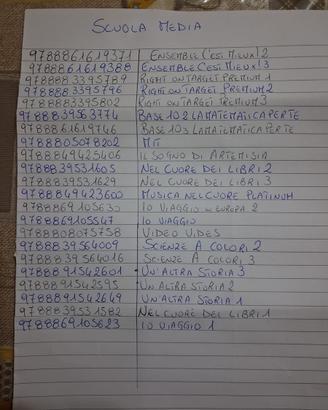 SCUOLA MEDIA
9788861619371 ENSEMBLE C'EST MIEUX! 2
9788861619388 ENSEMBLE C'EST MIEUX! 3
9788883395789 RIGHT ON TARGET PREMIUM 1
9788883395796 RIGHT ON TARGET PREMIUM 2
9788883395802 RIGHT ON TARGET PREMIUM 3
9788839563774 BASE 10 2 LA MATEMATICA PER TE
9788861619746 BASE 10 3 LA MATEMATICA PER TE
9788805078202 MIT
9788849423406 IL SOGNO DI ARTEMISIA
9788839531605 NEL CUORE DEI LIBRI 2
9788839531629 NEL CUORE DEI LIBRI 3
9788849423600 MUSICA NEL CUORE PLATINUM
9788869105630 IO VIAGGIO IN EUROPA 2
9788869105547 IO VIAGGIO
9788808075758 VIDEO VIDES
9788839564009 SCIENZE A COLORI 2
9788839564016 SCIENZE A COLORI 3
9788891542601 UN'ALTRA STORIA 3
9788891542595 UN'ALTRA STORIA 2
9788891542649 UN'ALTRA STORIA 1
9788839531582 NEL CUORE DEI LIBRI 1
9788869105623 IO VIAGGIO 1